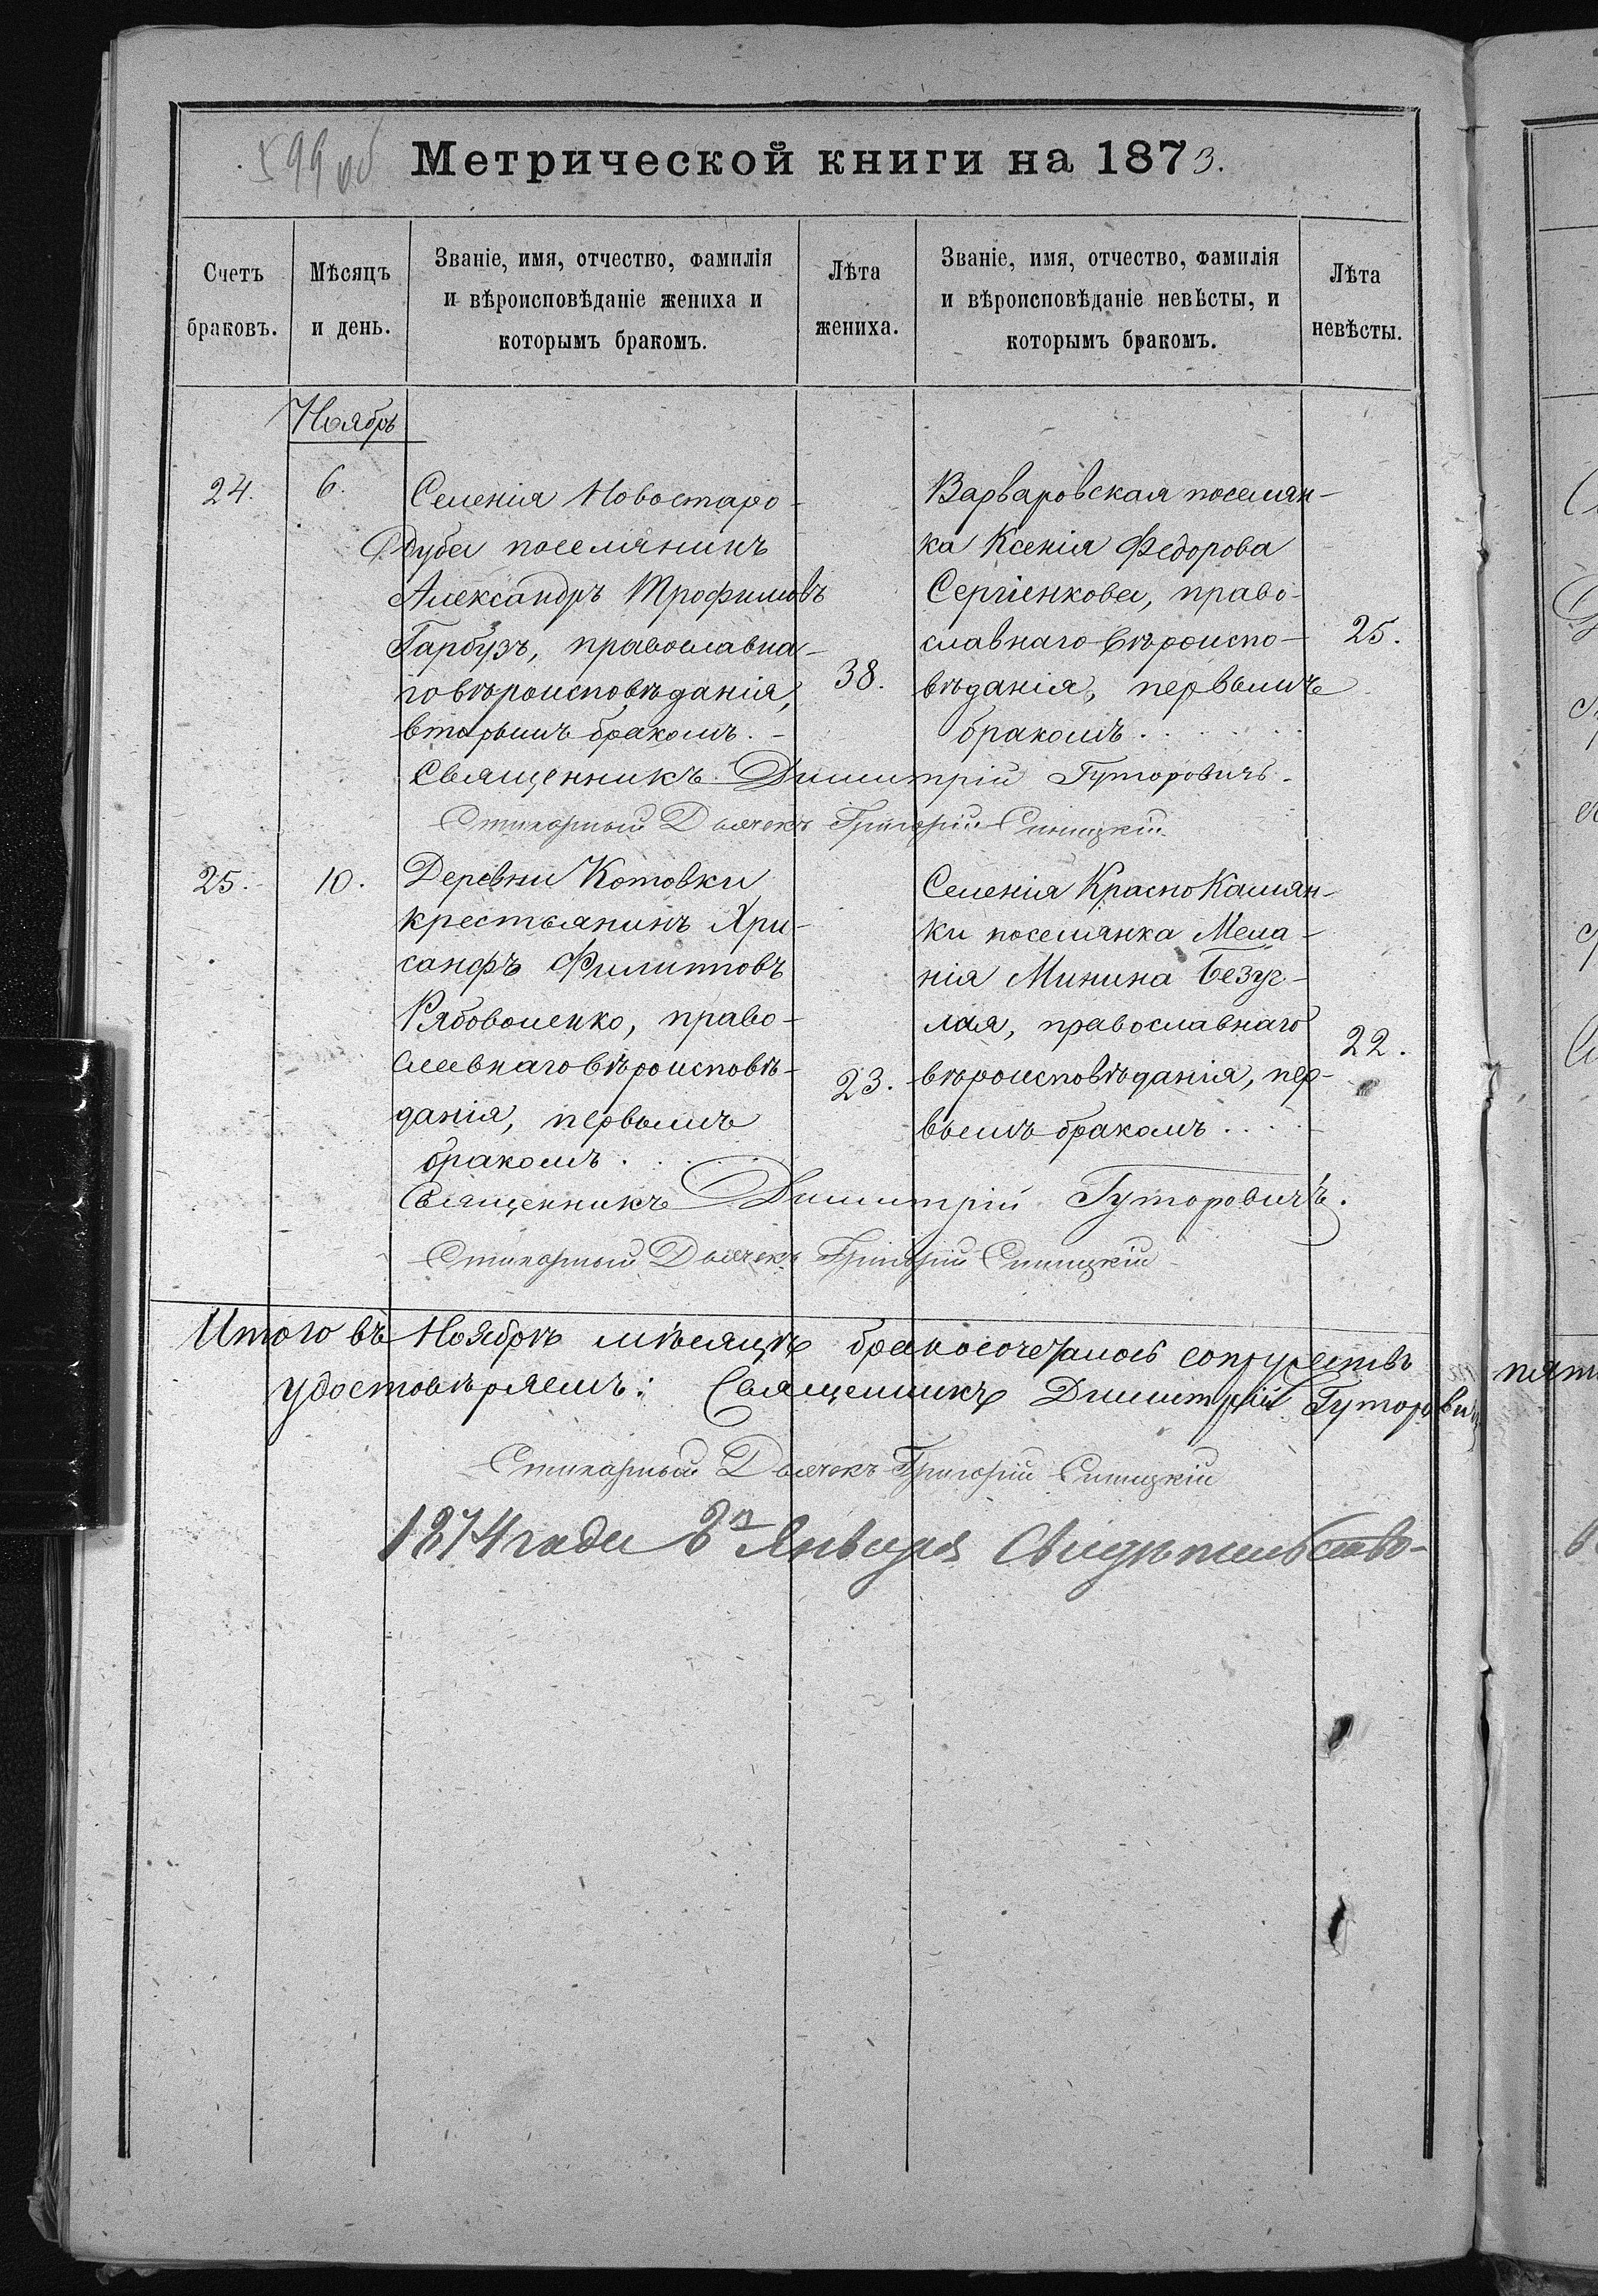 599 об
Метрической книги на 1873.
Счетъ браковъ.
Мѣсяцъ и день.
Званіе, имя, отчество, фамилія
и вѣроисповѣданіе жениха и
которымъ бракомъ.
Лѣта жениха.
Званіе, имя, отчество, фамилія
и вѣроисповѣданіе невѣсты, и
которымъ бракомъ.
Лѣта невѣсты.
Ноябрь
24. 6.
Селенія Новостаро-
дуба поселянинъ
Александръ Трофимовъ
Гарбузъ, православна-
го вѣроисповѣданія,
вторымъ бракомъ.
38.
Варваровская поселян-
ка Ксенія Федорова
Сергіенкова, право-
славнаго вѣроиспо-
вѣданія, первымъ
бракомъ.
25.
Священникъ Димитрій Гуторовичъ.
Стихарный Дьячекъ Григорій Синицкій
25. 10.
Деревни Котовки
крестьянинъ Хри-
санфъ Филипповъ
Рябоволенко, право-
славнаго вѣроисповѣ-
данія, первымъ
бракомъ.
23.
Селенія Красно Камян-
ки поселянка Мела-
нія Минина Безус-
лая, православнаго
вѣроисповѣданія, пер-
вымъ бракомъ
22.
Священникъ Димитрій Гуторовичъ.
Стихарный Дьячекъ Григорій Синицкій
Итого въ Ноябрѣ мѣсяцѣ бракосочеталось супружествъ
удостовѣряемъ: Священникъ Димитрій Гуторовичъ
Стихарный Дьячекъ Григорій Синицкій
1874 года Января Свидѣтельство-
пят